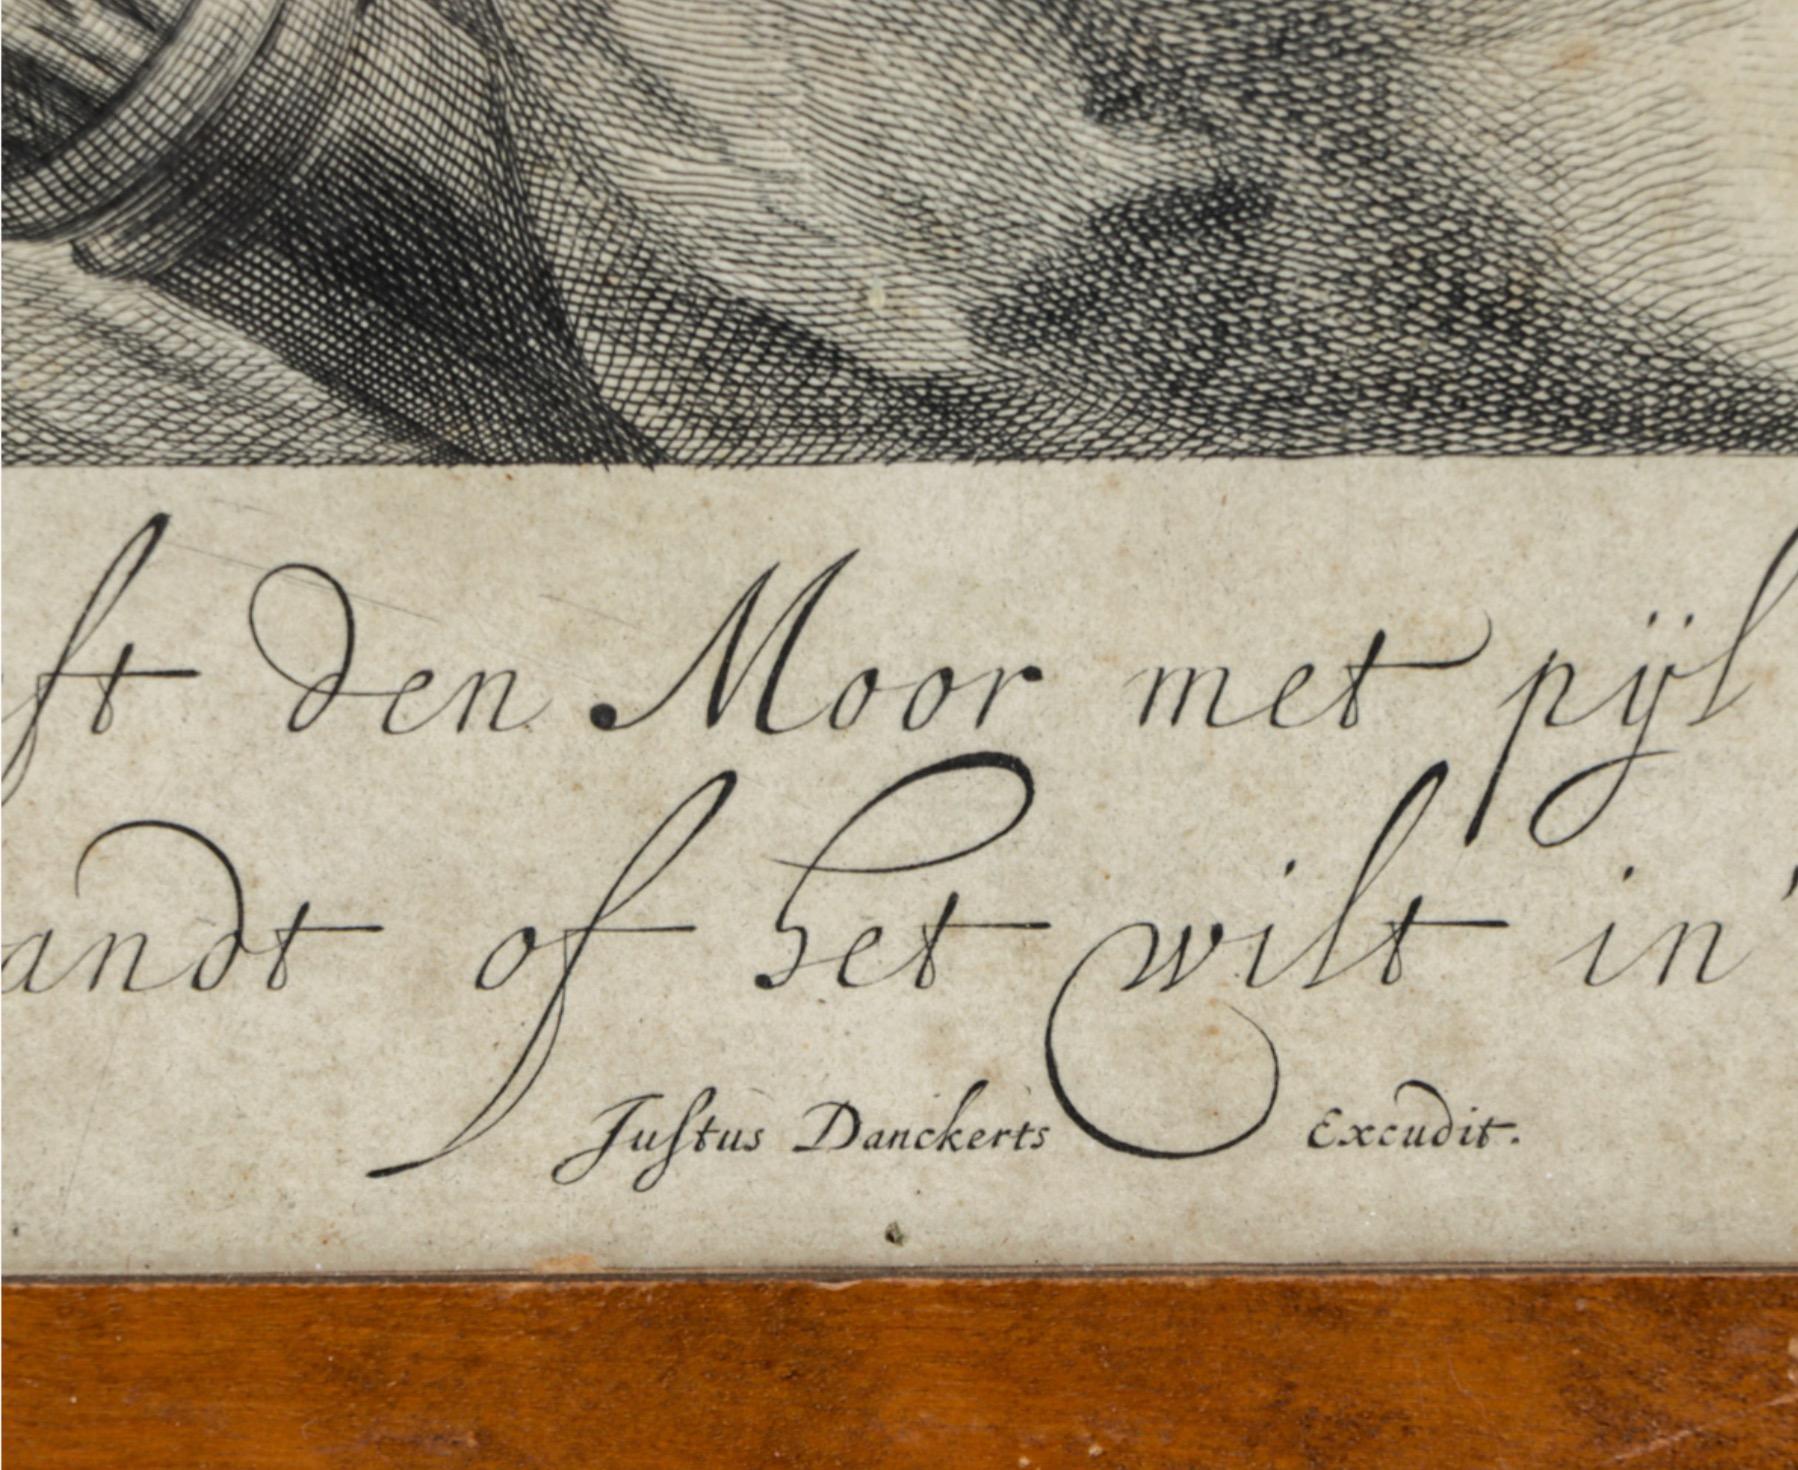 ſt den Moor met pÿl
andt of het wilt in'
Juſtus Danckerts Excudit.